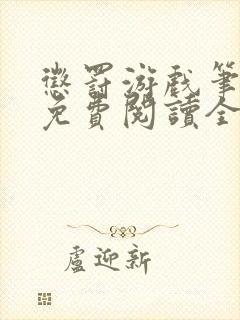 懲罰游戲筆
免費閱讀全
盧迎新